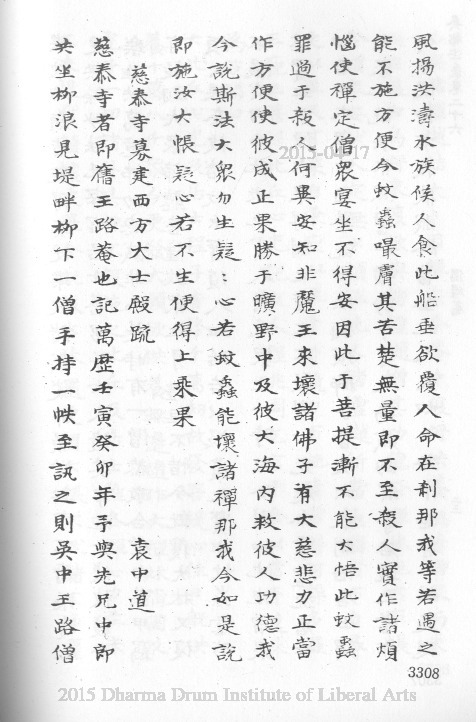 風揚洪濤水族候人食此船垂欲覆人命在刹那我等若遇之
能不施方便今蚊蟲嘬膚其苦楚無量即不至殺人實作諸煩
惱使禪定僧眾宴坐不得安因此于菩提漸不能大悟此蚊蟲
罪過于殺人何異安知非魔王來壞諸佛子有大慈悲力正當
作方便使彼成正果勝于曠野中及彼大海內救彼人功德我
今說斯法大眾勿生疑：心若蚊蟲能壞諸禪那我今如是說
即施汝大帳疑心若不生便得上乘果
慈泰寺募建西方大士殿疏
袁中道
慈泰寺者即舊王路菴也記萬歷壬寅癸卯年予與先兄中郎
共坐柳浪見堤畔柳下一僧手持一帙至訊之則吳中王路僧
3308
2015-04-17
2015 Dharma Drum Institute of Liberal Arts